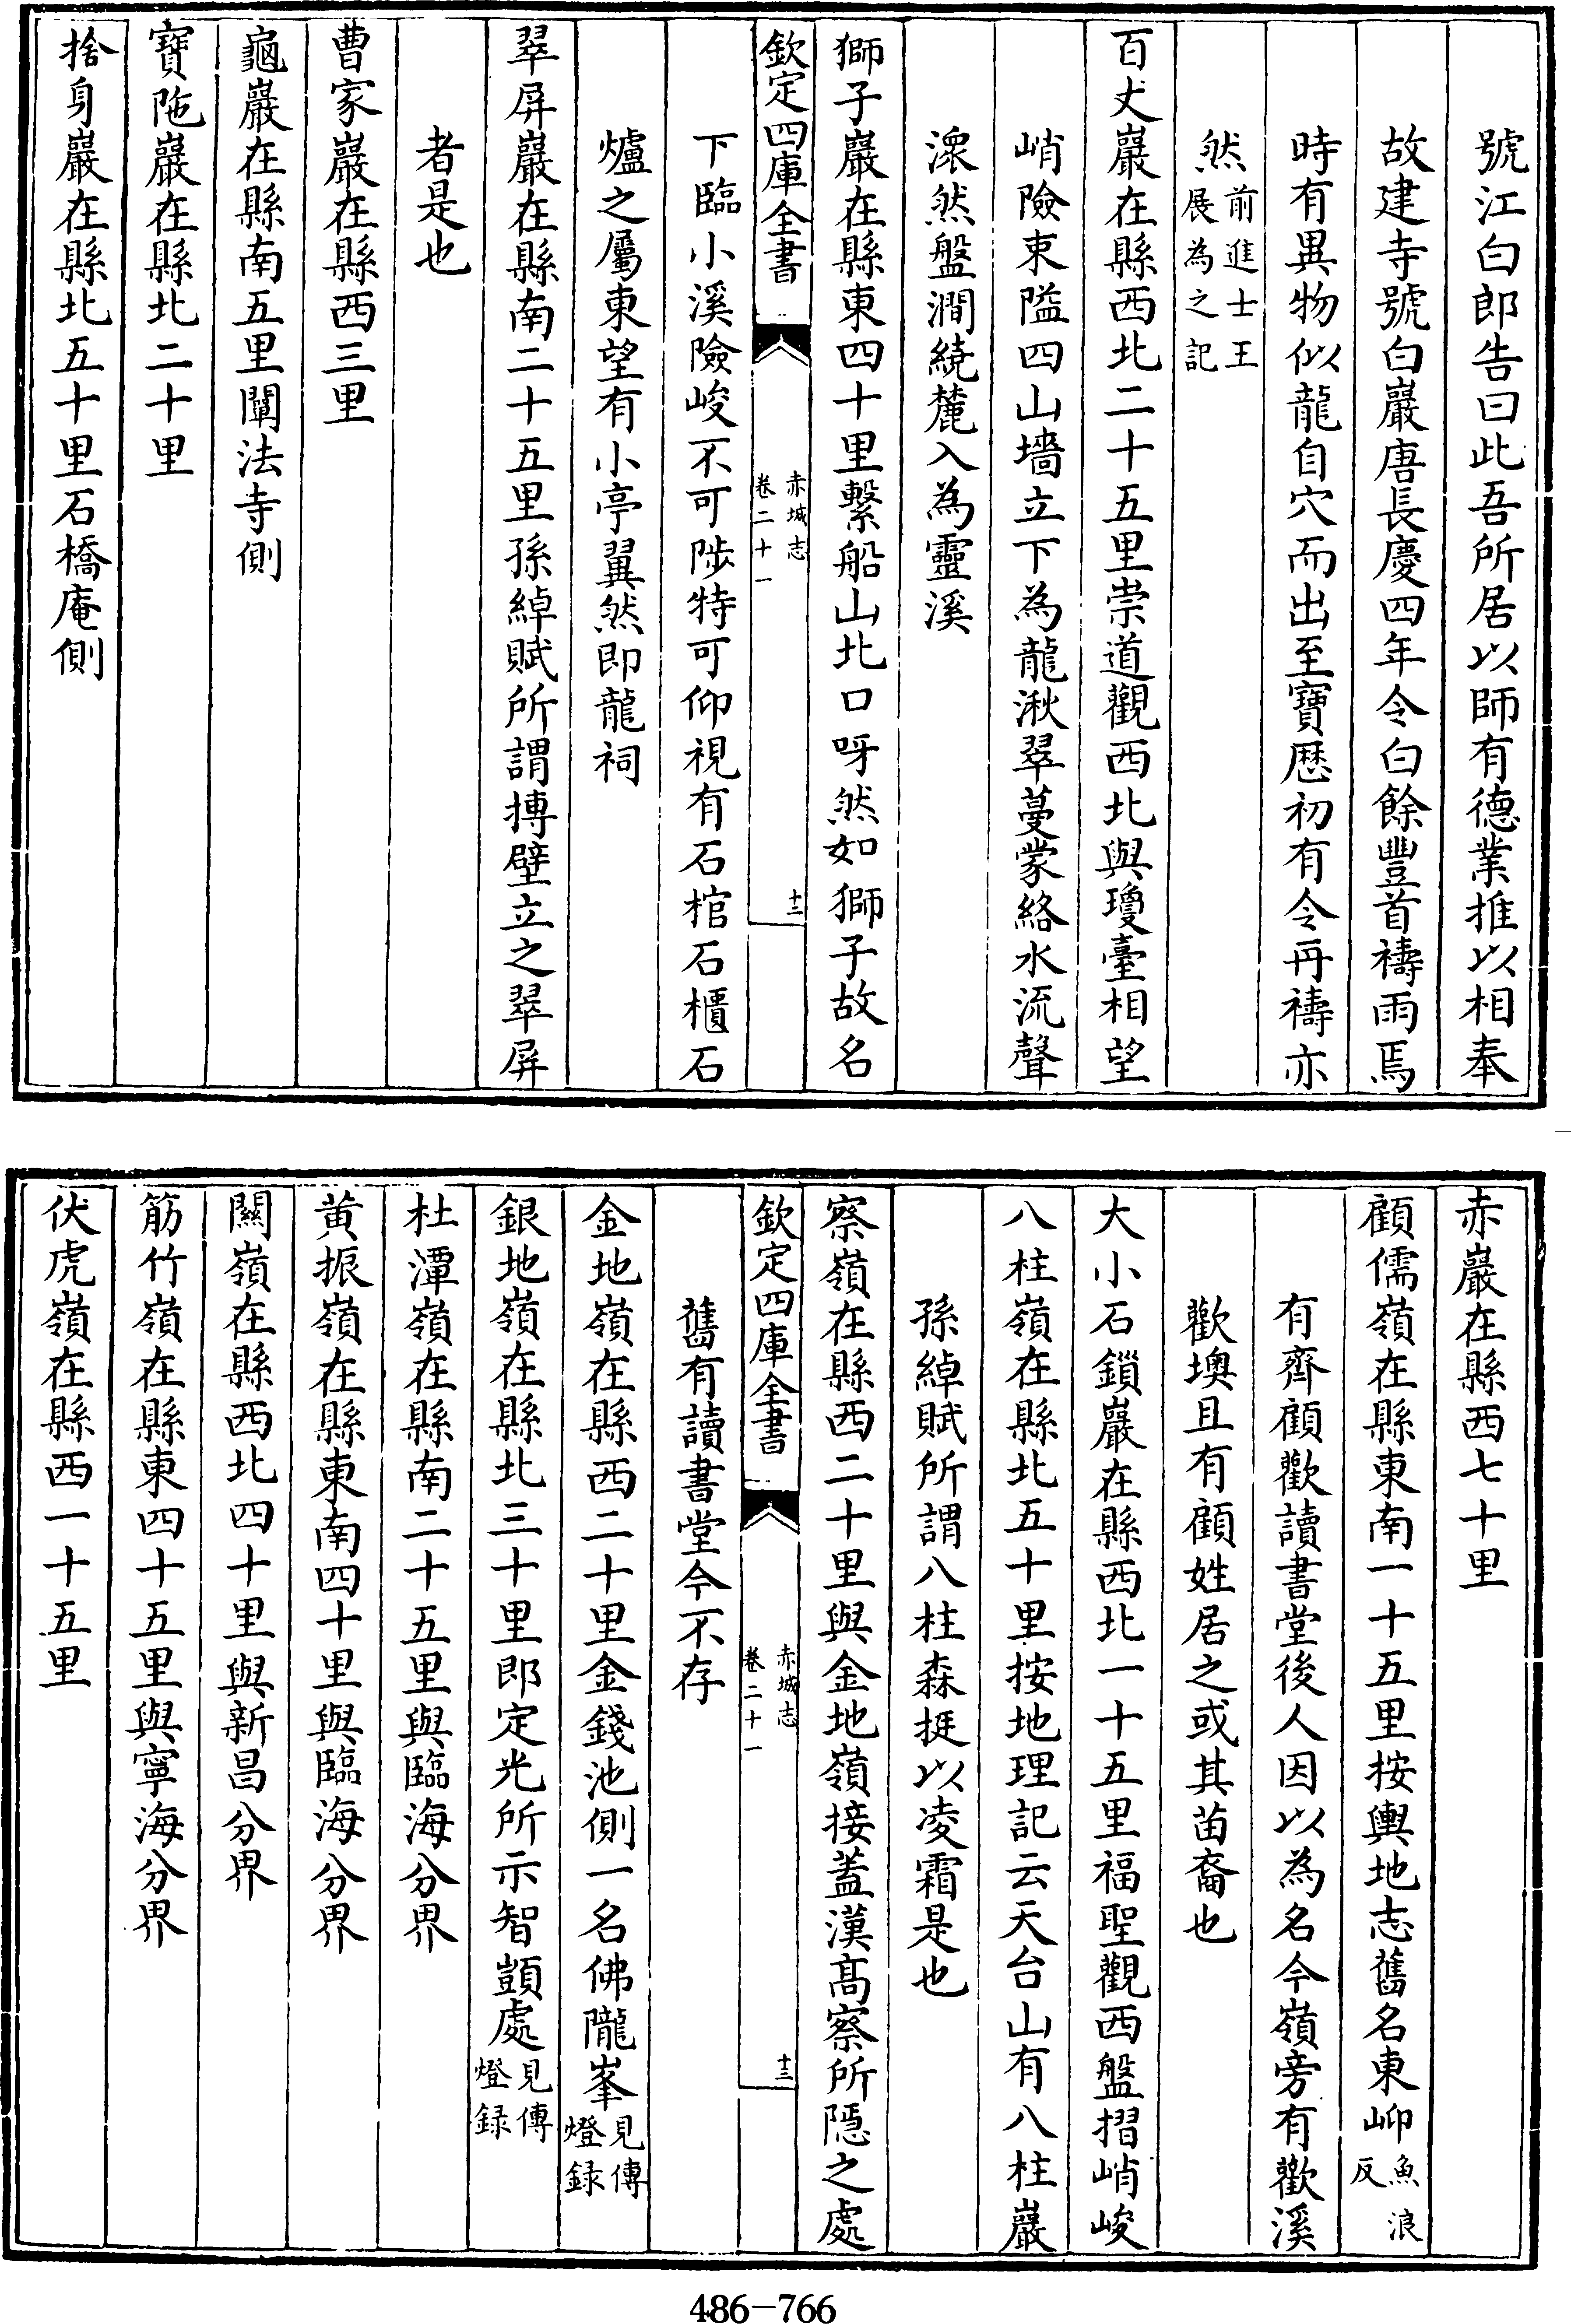 號江白郎告曰此吾所居以師有德業推以相奉
故建寺號白巖唐長慶四年令白餘豐首禱雨焉
時有異物似龍自穴而出至寶歷初有令再禱亦
然前進士王展為之記
百丈巖在縣西北二十五里崇道觀西北與瓊臺相望
峭險束隘四山墻立下為龍湫翠蔓蒙絡水流聲
潀然盤澗繞麓入為靈溪
獅子巖在縣東四十里繫船山北口呀然如獅子故名
欽定四庫全書
赤城志
卷二十一
十二
下臨小溪險峻不可陟特可仰視有石棺石櫃石
爐之屬東望有小亭翼然即龍祠
翠屏巖在縣南二十五里孫綽賦所謂摶壁立之翠屏
者是也
曹家巖在縣西三里
龜巖在縣南五里闡法寺側
寶陁巖在縣北二十里
捨身巖在縣北五十里石橋庵側
赤巖在縣西七十里
顧儒嶺在縣東南一十五里按輿地志舊名東峁魚浪反
有齊顧歡讀書堂後人因以為名今嶺旁有歡溪
歡墺且有顧姓居之或其苗裔也
大小石鎖巖在縣西北一十五里福聖觀西盤摺峭峻
八柱嶺在縣北五十里按地理記云天台山有八柱巖
孫綽賦所謂八柱森挺以凌霜是也
察嶺在縣西二十里與金地嶺接葢漢髙察所隱之處
欽定四庫全書
赤城志
卷二十一
十三
舊有讀書堂今不存
金地嶺在縣西二十里金錢池側一名佛隴峯見傳燈録
銀地嶺在縣北三十里即定光所示智顗處見傳燈録
杜潭嶺在縣南二十五里與臨海分界
黄振嶺在縣東南四十里與臨海分界
關嶺在縣西北四十里與新昌分界
筋竹嶺在縣東四十五里與寧海分界
伏虎嶺在縣西一十五里
486-766